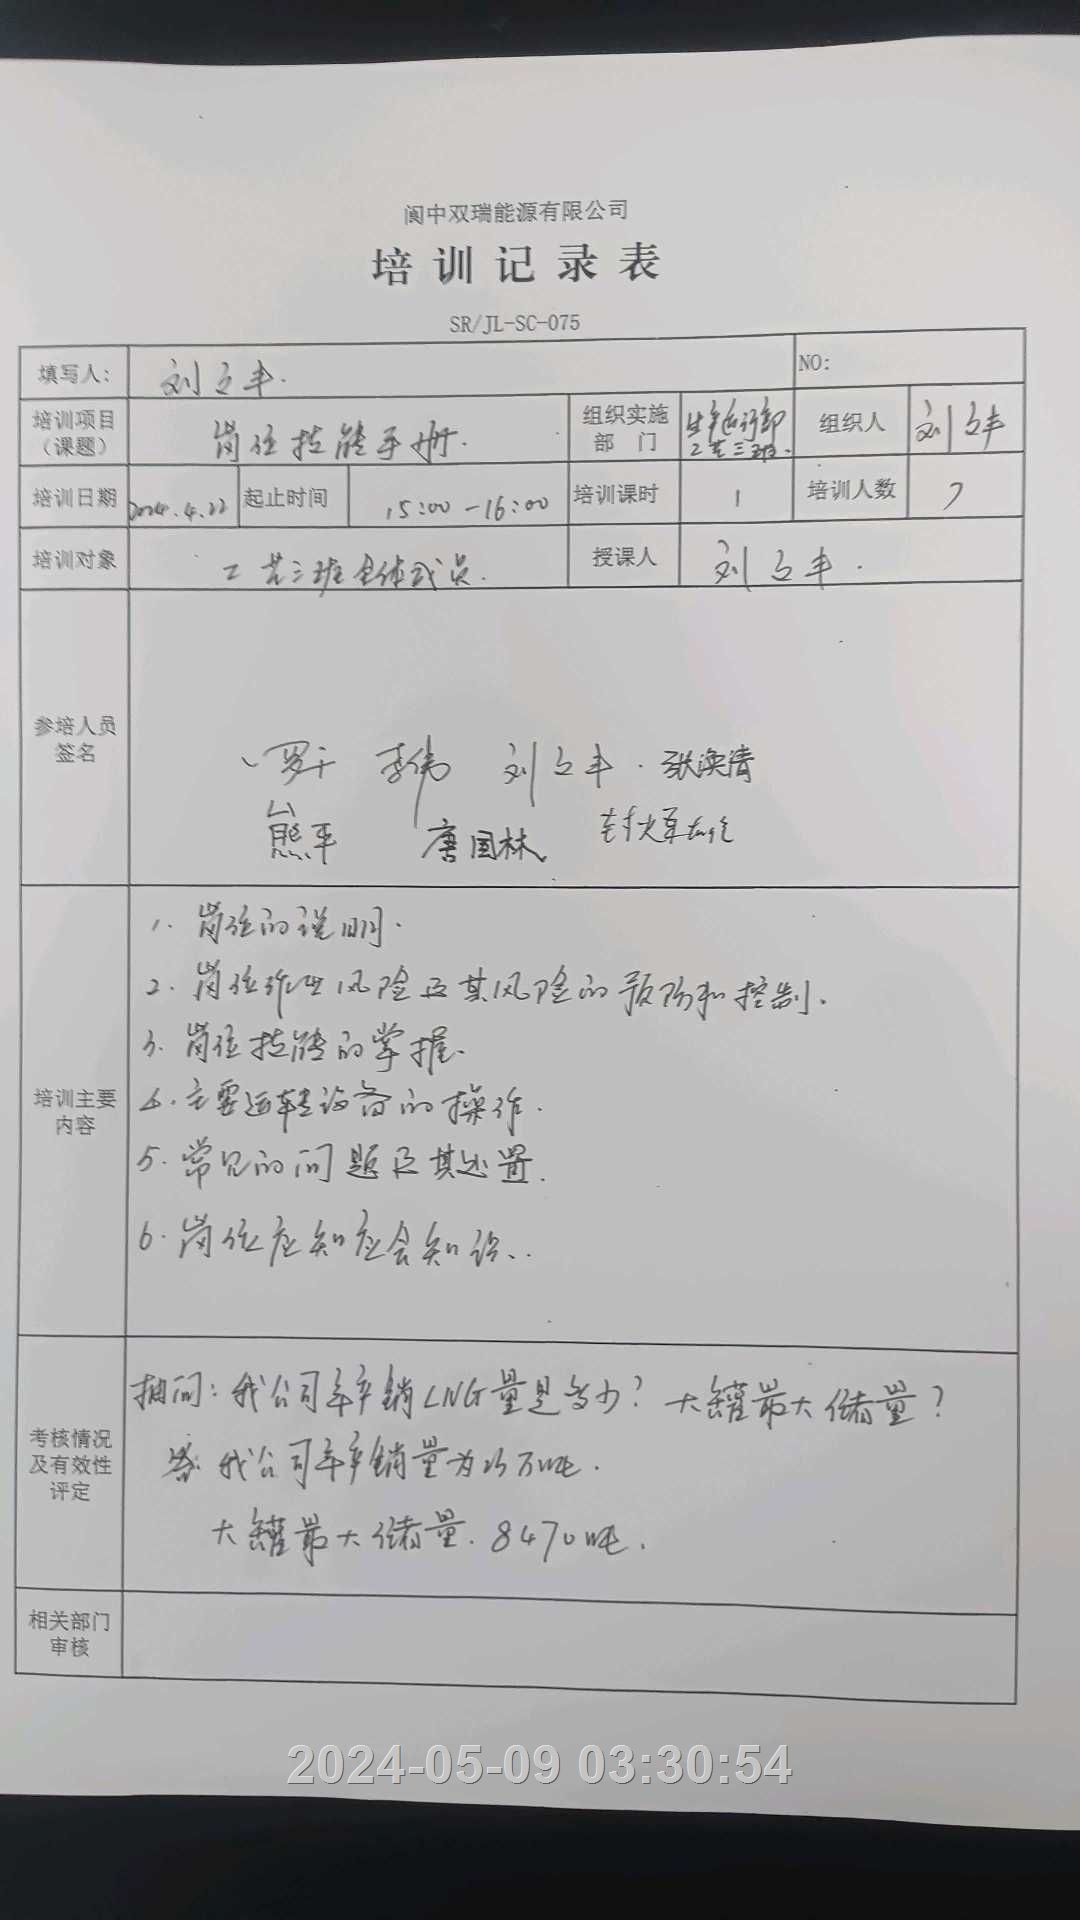 阆中双瑞能源有限公司
培训记录表
SR/JL-SC-075
填写人: 刘立丰. NO:
培训项目（课题） 岗位技能手册. 组织实施部门 生产运行部工艺三班. 组织人 刘立丰
培训日期 2024.4.22 起止时间 15:00-16:00 培训课时 1 培训人数 7
培训对象 工艺三班全体成员. 授课人 刘立丰.
参培人员签名
罗干 李伟 刘立丰. 张涣清
熊平 唐国林
培训主要内容
1. 岗位的说明.
2. 岗位作业风险及其风险的预防和控制.
3. 岗位技能的掌握.
4. 主要运转设备的操作.
5. 常见的问题及其处置.
6. 岗位应知应会知识..
考核情况及有效性评定
抽问: 我公司年产销LNG量是多少? 大罐最大储量?
答: 我公司年产销量为 万吨.
大罐最大储量. 8470吨.
相关部门审核
2024-05-09 03:30:54